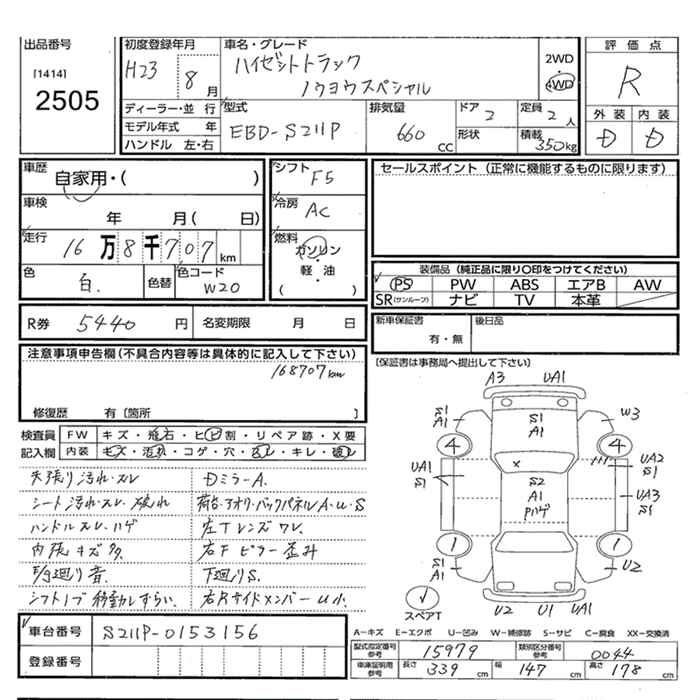 出品番号
[1414]
2505
初度登録年月
H23 8 月
車名・グレード
ハイゼットトラック
ノウヨウスペシャル
2WD
・
4WD
評価点
R
外装 内装
D D
ディーラー・並 行
モデル年式 年
ハンドル 左・右
型式
EBD-S211P
排気量
660 CC
ドア 2
形状
定員 2 人
積載 350kg
車歴
自家用・( )
車検
年 月( 日)
走行
16万8千707km
色
白.
色替
色コード
W20
シフト
F5
冷房
AC
燃料
ガソリン
・
軽・油
( )
セールスポイント (正常に機能するものに限ります)
装備品 (純正品に限り○印をつけてください)
PS PW ABS エアB AW
SR(サンルーフ) ナビ TV 本革
R券 5440 円 名変期限 月 日
新車保証書
有・無
後日品
[保証書は事務局へ提出して下さい]
注意事項申告欄(不具合内容等は具体的に記入して下さい)
168707km
修復歴 有〔箇所 〕
検査員 FW キズ・飛石・ヒビ割・リペア跡・X要
記入欄 内装 キズ・汚れ・コゲ・穴・スレ・キレ・破レ
天張り汚れ・スレ
シート汚れ・スレ・破れ
ハンドルスレ・ハゲ
内張キズ多
廻り音
移動しずらい.
DミラーA.
荷台・アオリ・バックパネルA・U・S
左Tレンズワレ.
右Fピラー歪み
下廻りS.
右Rサイドメンバー
車台番号 S211P-0153156
登録番号
A3 UA1
S1
A1
S1
A1
W3
4 4
UA1
S1
UA2
S1
S2
A1
Pハゲ
UA3
S1
1 1
S1
A1
U2
スペアT
U2 U1 UA1
A-キズ E-エクボ U-凹み W-補修跡 S-サビ C-腐食 XX-交換済
型式指定番号
参考
15979
類別区分番号
参考
0044
車庫証明用
参考
長さ 339 cm 幅 147 cm 高さ 178 cm